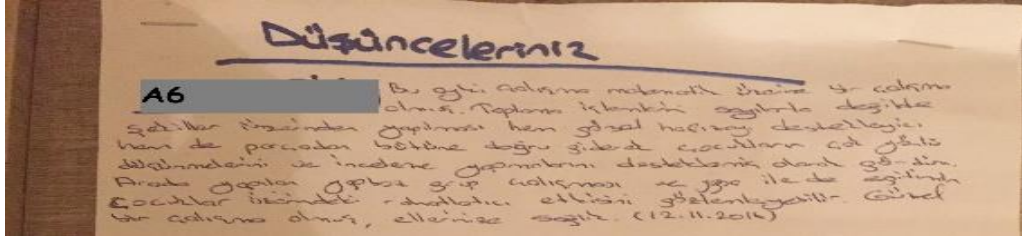 Düşünceleriniz
A6
Bu ayki çalışma matematik üzerine bir çalışma
olmuş. Toplama işleminin sayılarla değilde
şekiller üzerinden yapılması hem görsel hafızayı destekleyici
hem de parçadan bütüne doğru giderek çocukların çok yönlü
düşünmelerini ve inceleme yapmalarını desteklemiş olarak gördüm.
Arada yapılan grup çalışması ve ile de eğitimin
çocuklar üzerindeki rahatlatıcı etkisini gözlemleyebilir. Güzel
bir çalışma olmuş, ellerinize sağlık. (12.11.2016)